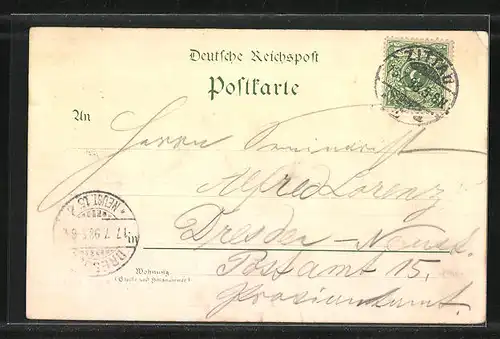 Deutsche Reichspost
Postkarte
ZITTAU
An
Herrn
Alfred Lorenz
in
Dresden-Neust.
NEUST. 15
17. 7. 98
DRES
Postamt 15.
Wohnung
(Straße und Hausnummer)
Proviantamt.